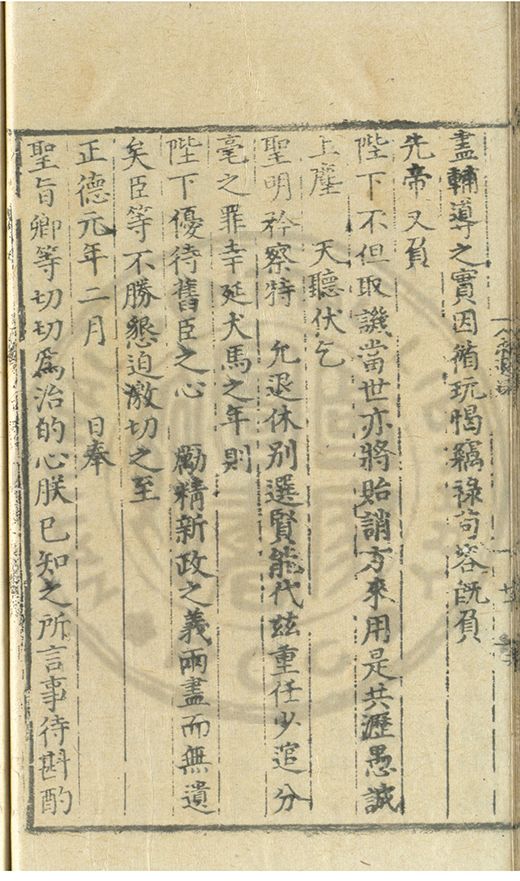 盡輔導之實因循玩愒竊祿苟容旣負
先帝又負
陛下不但取譏當世亦將貽誚方來用是共瀝愚誠
上塵　天聽伏乞
聖明矜察特　允退休別選賢能代玆重任少逭分
毫之罪幸延犬馬之年則
陛下優待舊臣之心　勵精新政之義兩盡而無遺
矣臣等不勝懇迫激切之至
正德元年二月　　日奉
聖旨卿等切切爲治的心朕已知之所言事待斟酌